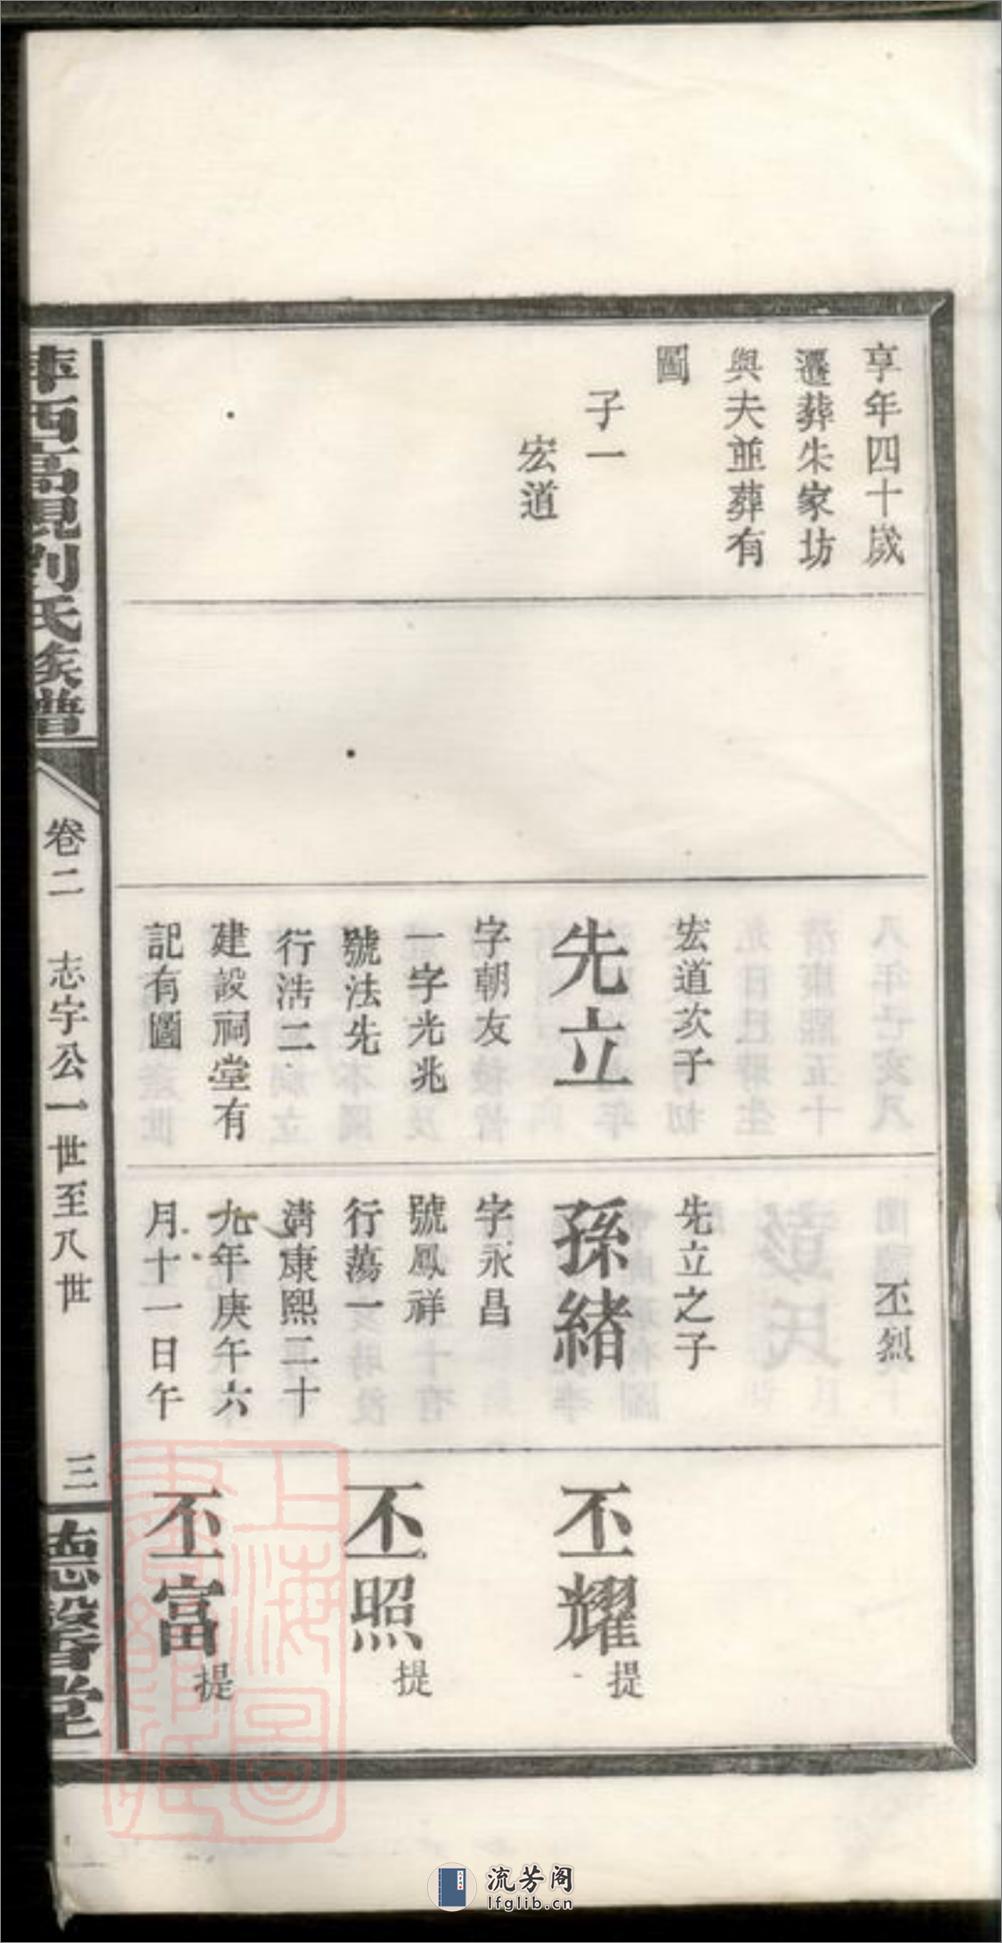 享年四十歲
遷葬朱家坊
與夫並葬有
圖
子一
宏道
宏道次子
先立
字朝友
一字光兆
號法先
行浩二
建設祠堂有
記有圖
丕烈
先立之子
孫緒
字永昌
號鳳祥
行蕩一
清康熙二十
九年庚午六
月十一日午
丕耀提
丕照提
丕富提
萍西高視劉氏族譜
卷二 志宇公一世至八世
三
德馨堂
上海圖書館藏
流芳阁
lfglib.cn